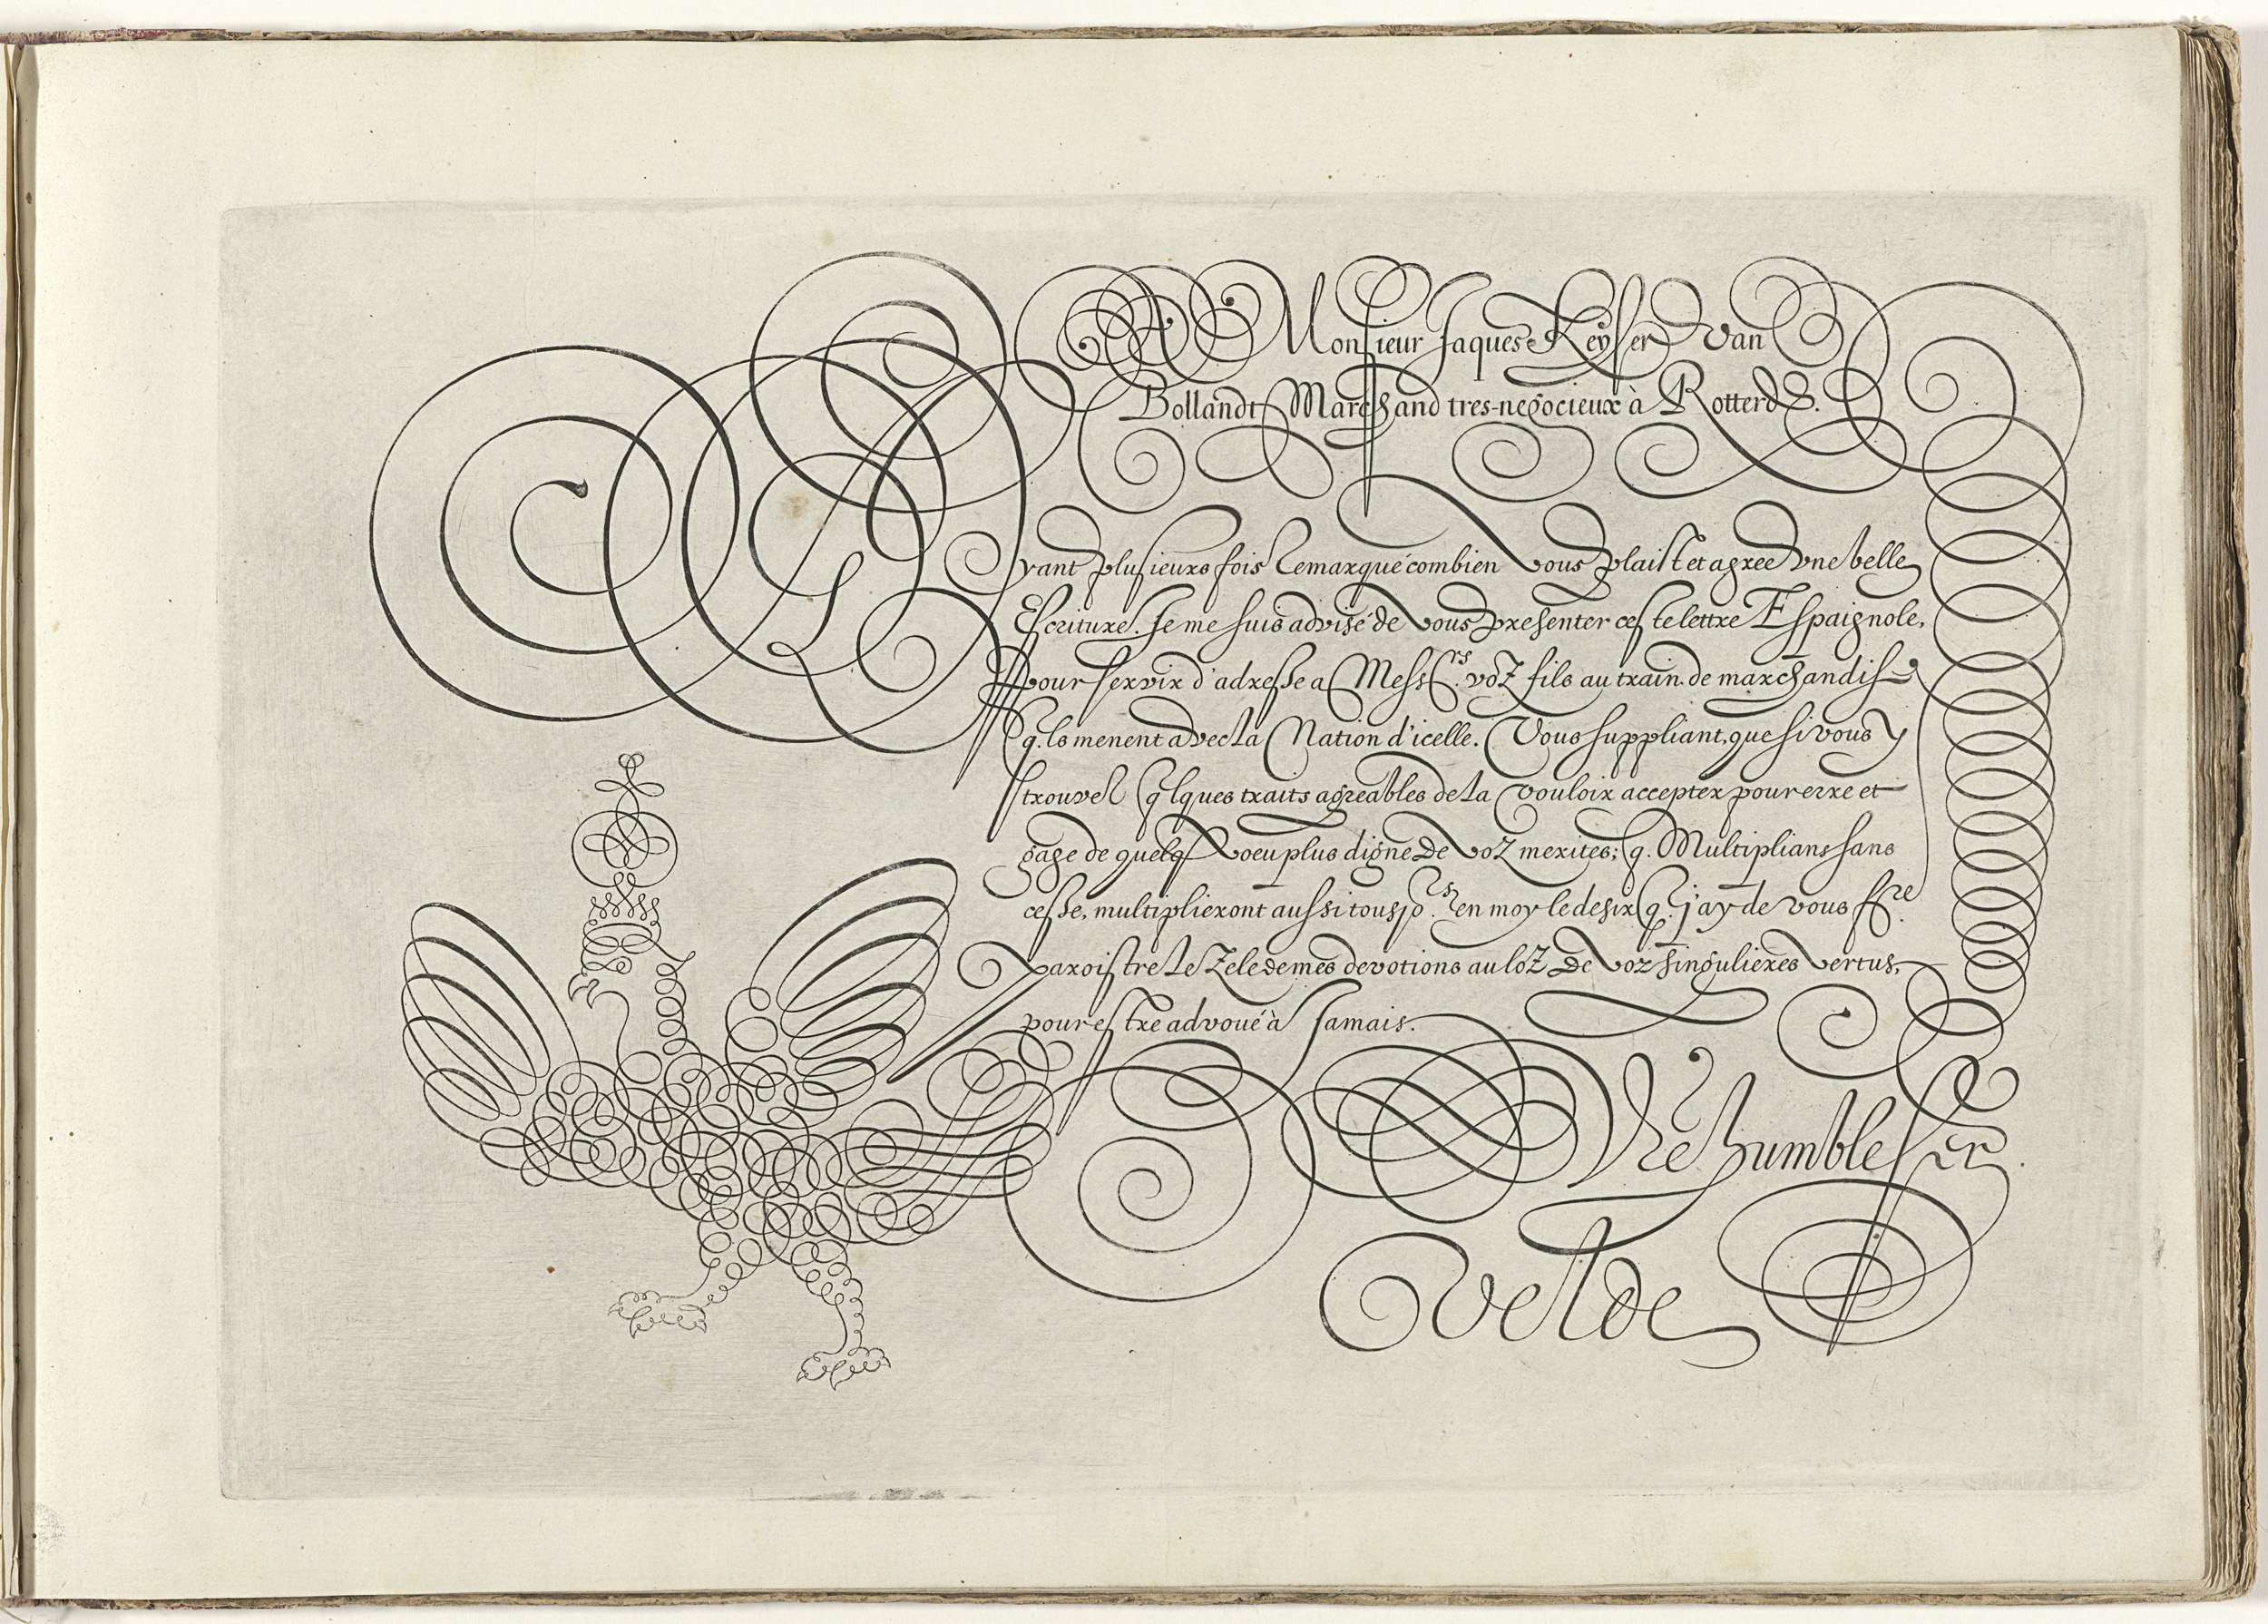 A Monsieur Jaques Keyser van
Bollandt Marchand tres-negocieux à Rotterd.
Ayant plusieurs fois remarqué combien vous plaist et agree une belle
Escriture. Je me suis advisé de vous presenter ceste lettre Espaignole,
Pour servir d'adresse a Mess.rs voz fils au train de marchandise
q. ls menent avec la Nation d'icelle. Vous suppliant, que si vous y
trouvez qlques traits agreables de la vouloir accepter pour erre et
gage de quelq. voeu plus digne de voz merites; q. Multiplians sans
cesse, multiplieront aussi tousjo.rs en moy le desir q. j'ay de vous f.re
paroistre le Zele de mes devotions au loz de voz singulieres vertus,
pour estre advoué à Jamais.
Vre humble ser.
Velde